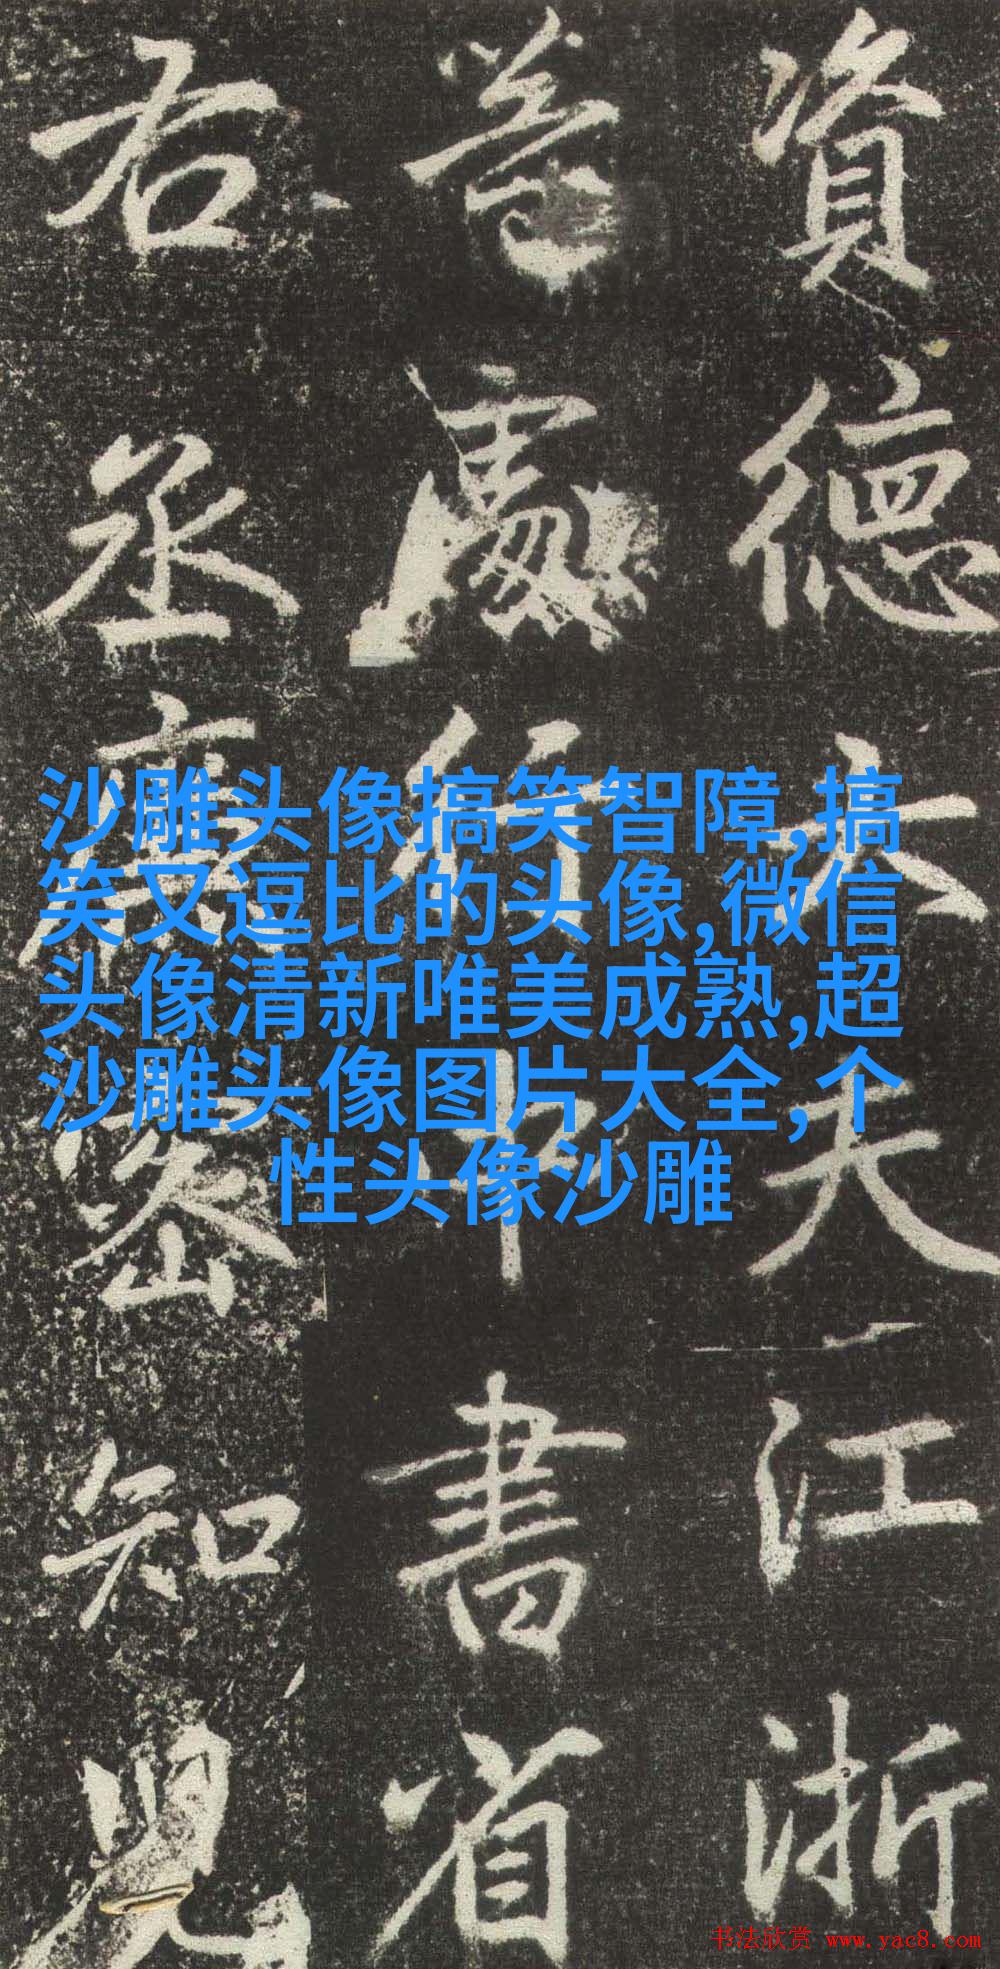 資德大夫江浙
等處行中書省
右丞廉密知兒
沙雕头像搞笑智障,搞
笑又逗比的头像,微信
头像清新唯美成熟,超
沙雕头像图片大全,个
性头像沙雕
书法欣赏 www.yac8.com